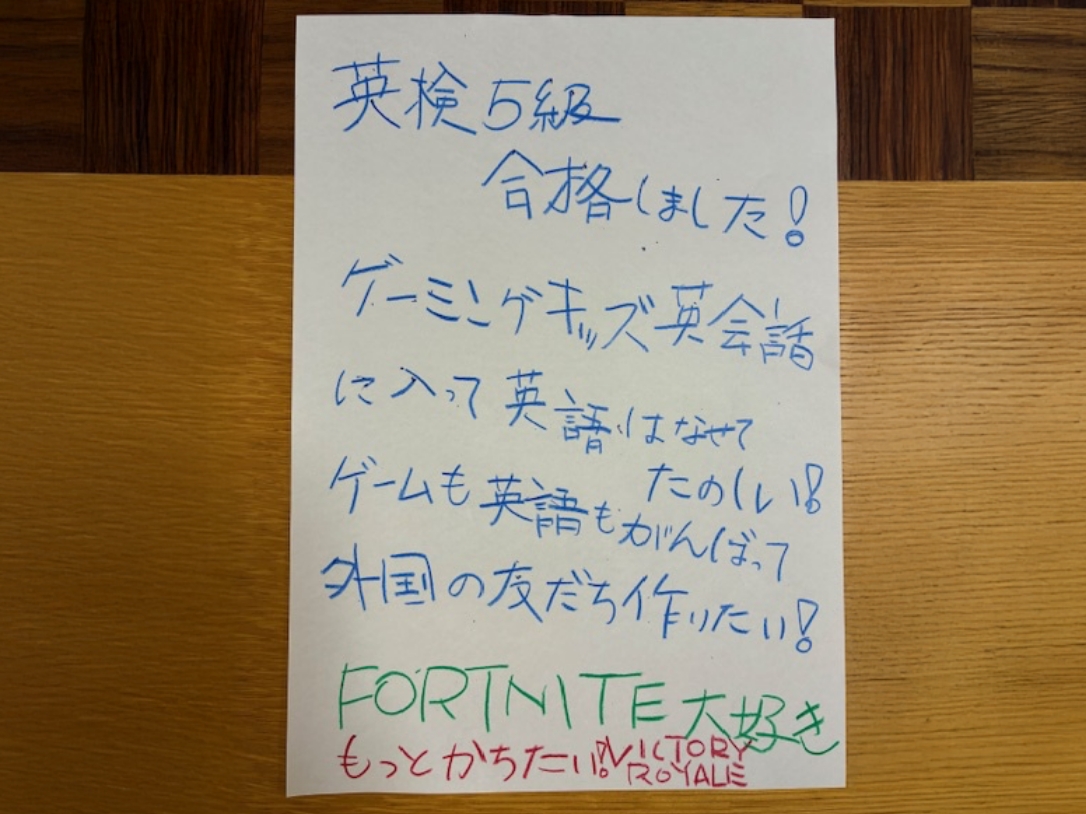 英検5級
合格しました!
ゲーミングキッズ英会話
に入って英語はなせて
たのしい!
ゲームも英語もがんばって
外国の友だち作りたい!
FORTNITE大好き
もっとかちたい!VICTORY
ROYALE